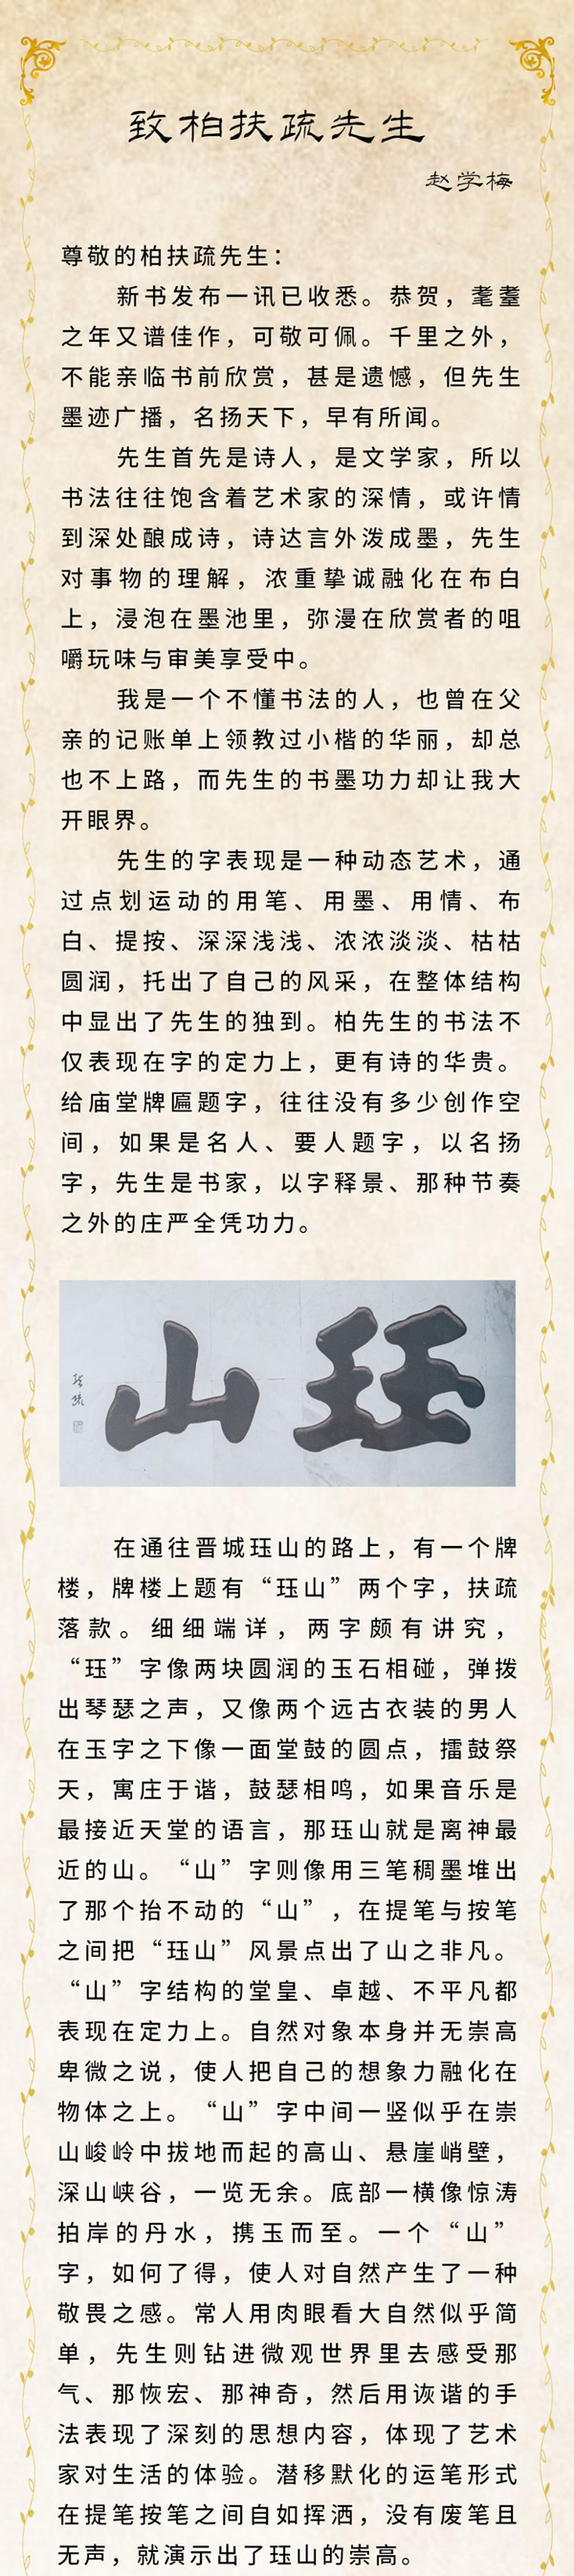 致柏扶疏先生
赵学梅
尊敬的柏扶疏先生：
新书发布一讯已收悉。恭贺，耄耋
之年又谱佳作，可敬可佩。千里之外，
不能亲临书前欣赏，甚是遗憾，但先生
墨迹广播，名扬天下，早有所闻。
先生首先是诗人，是文学家，所以
书法往往饱含着艺术家的深情，或许情
到深处酿成诗，诗达言外泼成墨，先生
对事物的理解，浓重挚诚融化在布白
上，浸泡在墨池里，弥漫在欣赏者的咀
嚼玩味与审美享受中。
我是一个不懂书法的人，也曾在父
亲的记账单上领教过小楷的华丽，却总
也不上路，而先生的书墨功力却让我大
开眼界。
先生的字表现是一种动态艺术，通
过点划运动的用笔、用墨、用情、布
白、提按、深深浅浅、浓浓淡淡、枯枯
圆润，托出了自己的风采，在整体结构
中显出了先生的独到。柏先生的书法不
仅表现在字的定力上，更有诗的华贵。
给庙堂牌匾题字，往往没有多少创作空
间，如果是名人、要人题字，以名扬
字，先生是书家，以字释景、那种节奏
之外的庄严全凭功力。
山珏
扶疏
在通往晋城珏山的路上，有一个牌
楼，牌楼上题有“珏山”两个字，扶疏
落款。细细端详，两字颇有讲究，
“珏”字像两块圆润的玉石相碰，弹拨
出琴瑟之声，又像两个远古衣装的男人
在玉字之下像一面堂鼓的圆点，擂鼓祭
天，寓庄于谐，鼓瑟相鸣，如果音乐是
最接近天堂的语言，那珏山就是离神最
近的山。“山”字则像用三笔稠墨堆出
了那个抬不动的“山”，在提笔与按笔
之间把“珏山”风景点出了山之非凡。
“山”字结构的堂皇、卓越、不平凡都
表现在定力上。自然对象本身并无崇高
卑微之说，使人把自己的想象力融化在
物体之上。“山”字中间一竖似乎在崇
山峻岭中拔地而起的高山、悬崖峭壁，
深山峡谷，一览无余。底部一横像惊涛
拍岸的丹水，携玉而至。一个“山”
字，如何了得，使人对自然产生了一种
敬畏之感。常人用肉眼看大自然似乎简
单，先生则钻进微观世界里去感受那
气、那恢宏、那神奇，然后用诙谐的手
法表现了深刻的思想内容，体现了艺术
家对生活的体验。潜移默化的运笔形式
在提笔按笔之间自如挥洒，没有废笔且
无声，就演示出了珏山的崇高。